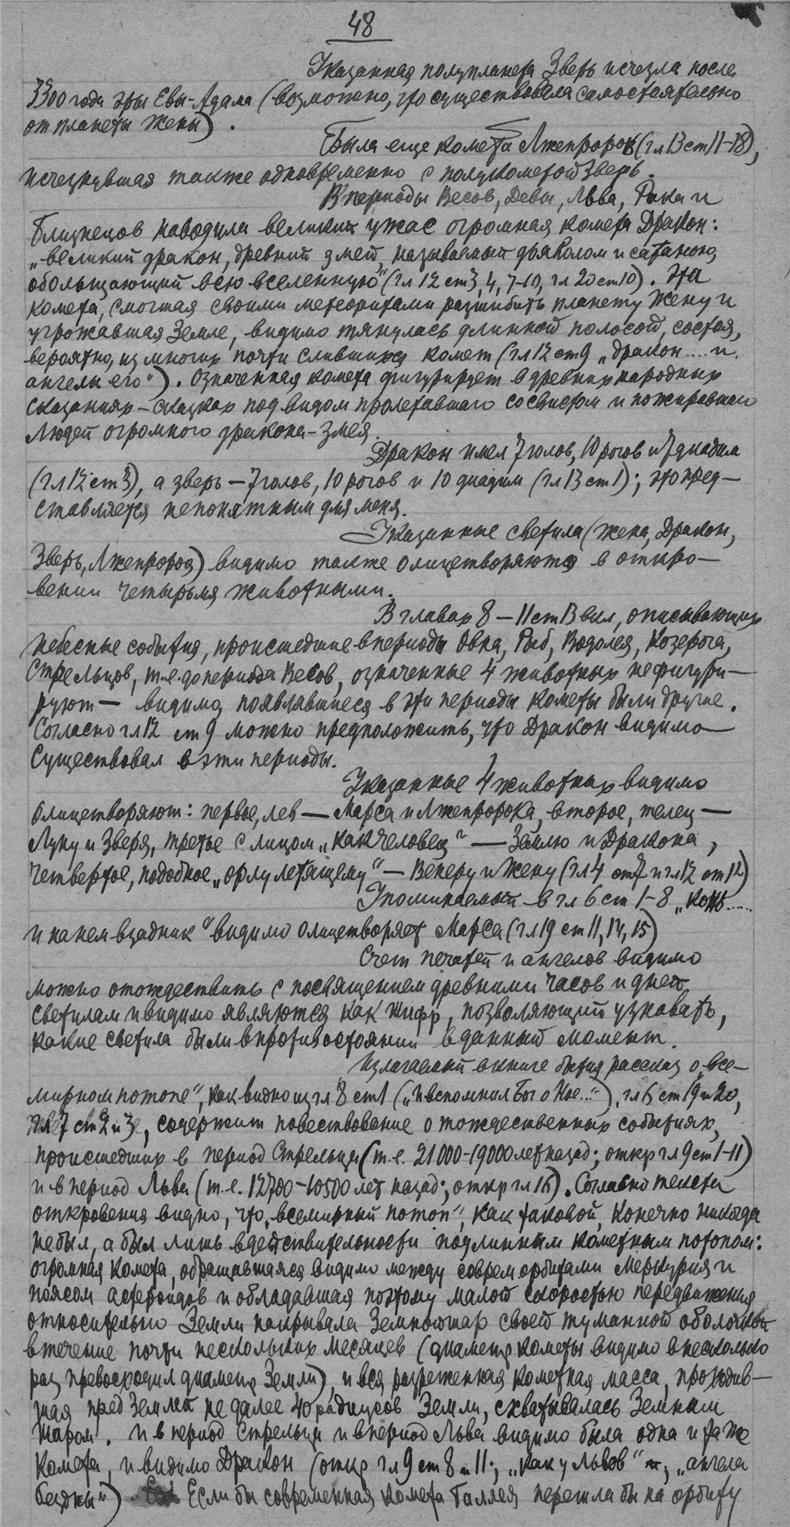 48
Указанная полупланета Зверь исчезла после
3300 года эры Евы-Адама (возможно, что существовала самостоятельно
от планеты Жены).
Была еще комета Лжепророк (гл 13 ст 11-18),
исчезнувшая также одновременно с полукометой Зверь.
В периоды Весов, Девы, Льва, Рака и
Близнецов наводила великий ужас огромная комета Дракон:
„великий дракон, древний змей, называемый дьяволом и сатаною,
обольщающий всю вселенную" (гл 12 ст 3, 4, 7-10, гл 20 ст 10). Эта
комета, смогшая своими метеоритами разшибить планету Жену и
угрожавшая Земле, видимо тянулась длинной полосой, состоя,
вероятно, из многих почти слившихся комет (гл 12 ст 9 „дракон .... и
ангелы его"). Означенная комета фигурирует в древних народных
сказаниях-сказках под видом пролетавшего со свистом и пожиравшего
людей огромного дракона-змея.
Дракон имел 7 голов, 10 рогов и 7 диадим
(гл 12 ст 3), а зверь — 7 голов, 10 рогов и 10 диадим (гл 13 ст 1); это пред-
ставляется непонятным для меня.
Указанные светила (Жена, Дракон,
Зверь, Лжепророк) видимо также олицетворяются в откро-
вении четырьмя животными.
В главах 8 – 11 ст 13 вкл, описывающих
небесные события, происшедшие в периоды Овна, Рыб, Водолея, Козерога,
Стрельцов, т.е. до периода Весов, означенные 4 животных не фигури-
руют — видимо, появлявшиеся в эти периоды кометы были другие.
Согласно гл 12 ст 9 можно предположить, что Дракон видимо
существовал в эти периоды.
Указанные 4 животных видимо
олицетворяют: первое, лев — Марса и Лжепророка, второе, телец —
Луну и Зверя, третье с лицом „как человец" — Землю и Дракона,
четвертое, подобное „орлу летящему" — Венеру и Жену (гл 4 ст 7 и гл 12 ст 12)
Упоминаемый в гл 6 ст 1-8 „конь.....
и на нем всадник" видимо олицетворяет Марса (гл 19 ст 11, 14, 15)
Счет печатей и ангелов видимо
можно отождествить с посвящением древними часов и дней
светилам и видимо являются как шифр, позволяющий узнавать,
какие светила были в противостоянии в данный момент.
Излагаемый в книге бытия рассказ о „все-
мирном потопе", как видно из гл 8 ст 1 („И вспомнил Бог о Ное..."), гл 6 ст 19 и 20,
гл 7 ст 2 и 3, содержит повествование о тождественных событиях,
происшедших в период Стрельца (т.е. 21000-19000 лет назад; откр гл 9 ст 1-11)
и в период Льва (т.е. 12700-10500 лет назад; откр гл 16). Согласно текста
откровения видно, что „всемирный потоп", как таковой, конечно никогда
не был, а был лишь в действительности подлинным кометным потопом:
огромная комета, обращавшаяся видимо между соврем орбитами Меркурия и
поясом астероидов и обладавшая поэтому малой скоростью передвижения
относительно Земли покрывала Земной шар своей туманной оболочкой
в течение почти нескольких месяцев (диаметр кометы видимо в несколько
раз превосходил диаметр Земли), и вся разреженная кометная масса, проходив-
шая пред Землей не далее 40 радиусов Земли, схватывалась Земным
шаром. И в период Стрельца и в период Льва видимо была одна и та же
комета, и видимо Дракон (откр гл 9 ст 8 и 11; „как у львов" и „ангела
бездны"). Если бы современная комета Галлея перешла бы на орбиту